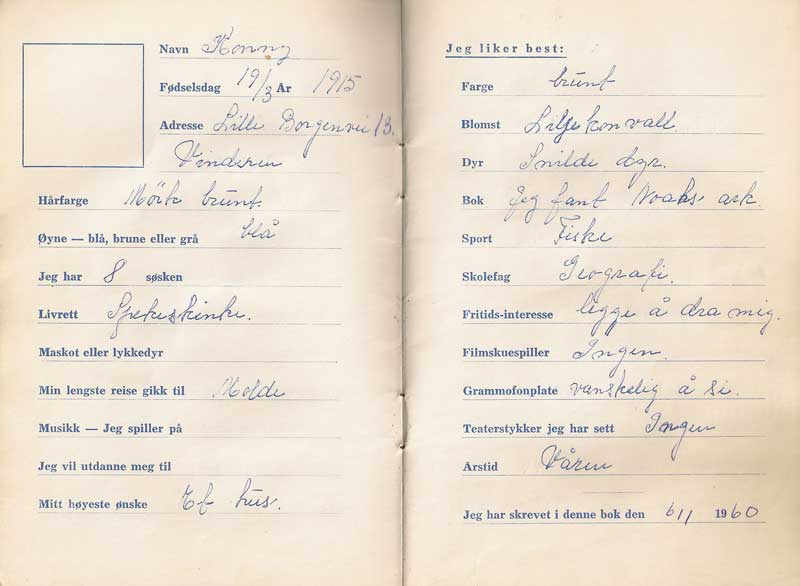 Navn Konny
Fødselsdag 19/3 År 1915
Adresse Lille Borgenvei 13.
Vinderen
Hårfarge Mörk brunt.
Øyne — blå, brune eller grå blå
Jeg har 8 søsken
Livrett Spekeskinke.
Maskot eller lykkedyr
Min lengste reise gikk til Molde
Musikk — Jeg spiller på
Jeg vil utdanne meg til
Mitt høyeste ønske Et hus.
Jeg liker best:
Farge brunt
Blomst Liljekonvall.
Dyr Snilde dyr.
Bok Jeg fant Noahs ark.
Sport Fiske
Skolefag Geografi.
Fritids-interesse ligge å dra mig.
Filmskuespiller Ingen.
Grammofonplate vanskelig å si.
Teaterstykker jeg har sett Ingen
Årstid Våren
Jeg har skrevet i denne bok den 6/1 1960